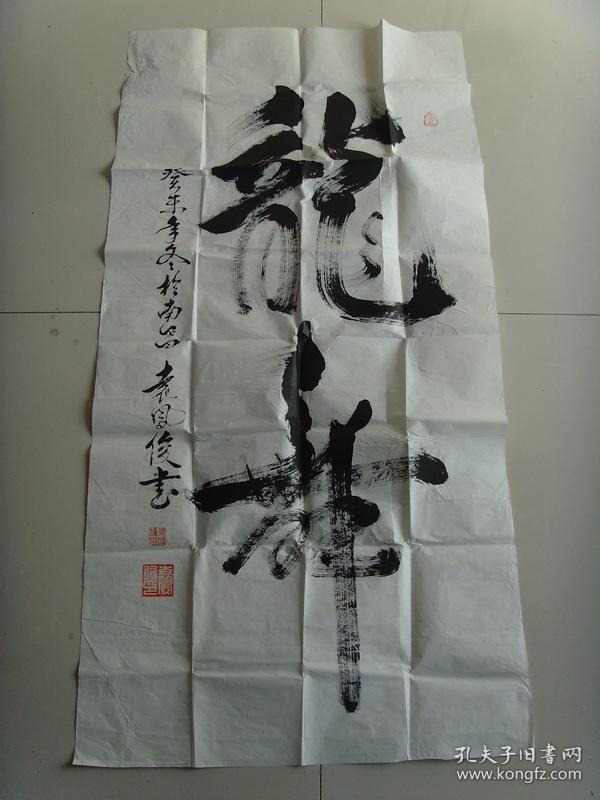 龍舞
癸未年冬於南昌 袁鳳俊书
孔夫子旧書网
www.kongfz.com